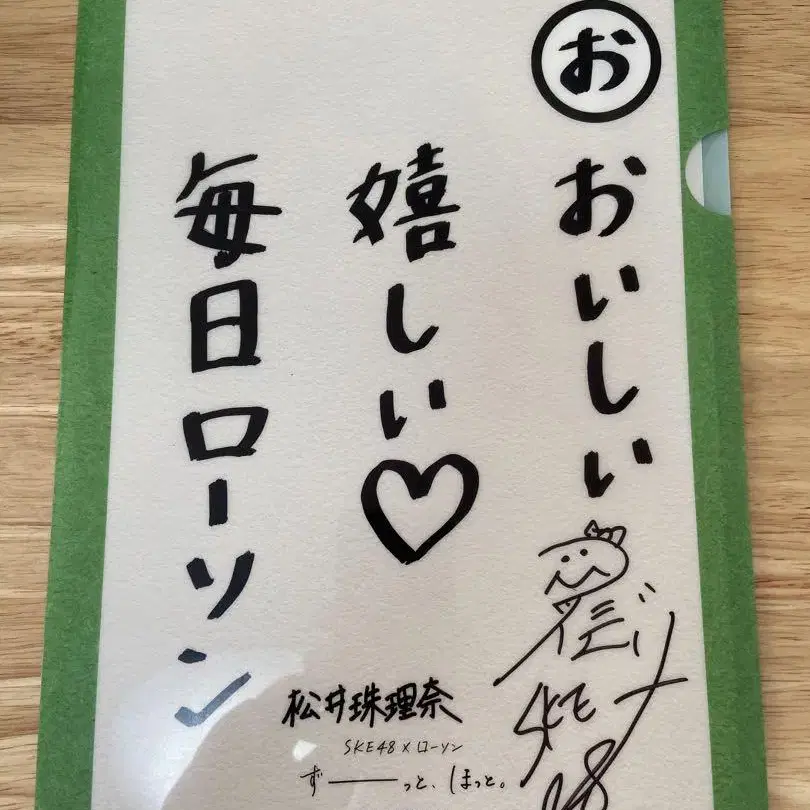 お
おいしい
嬉しい♡
毎日ローソン
松井珠理奈
SKE48×ローソン
ず――っと、ほっと。
SKE
48